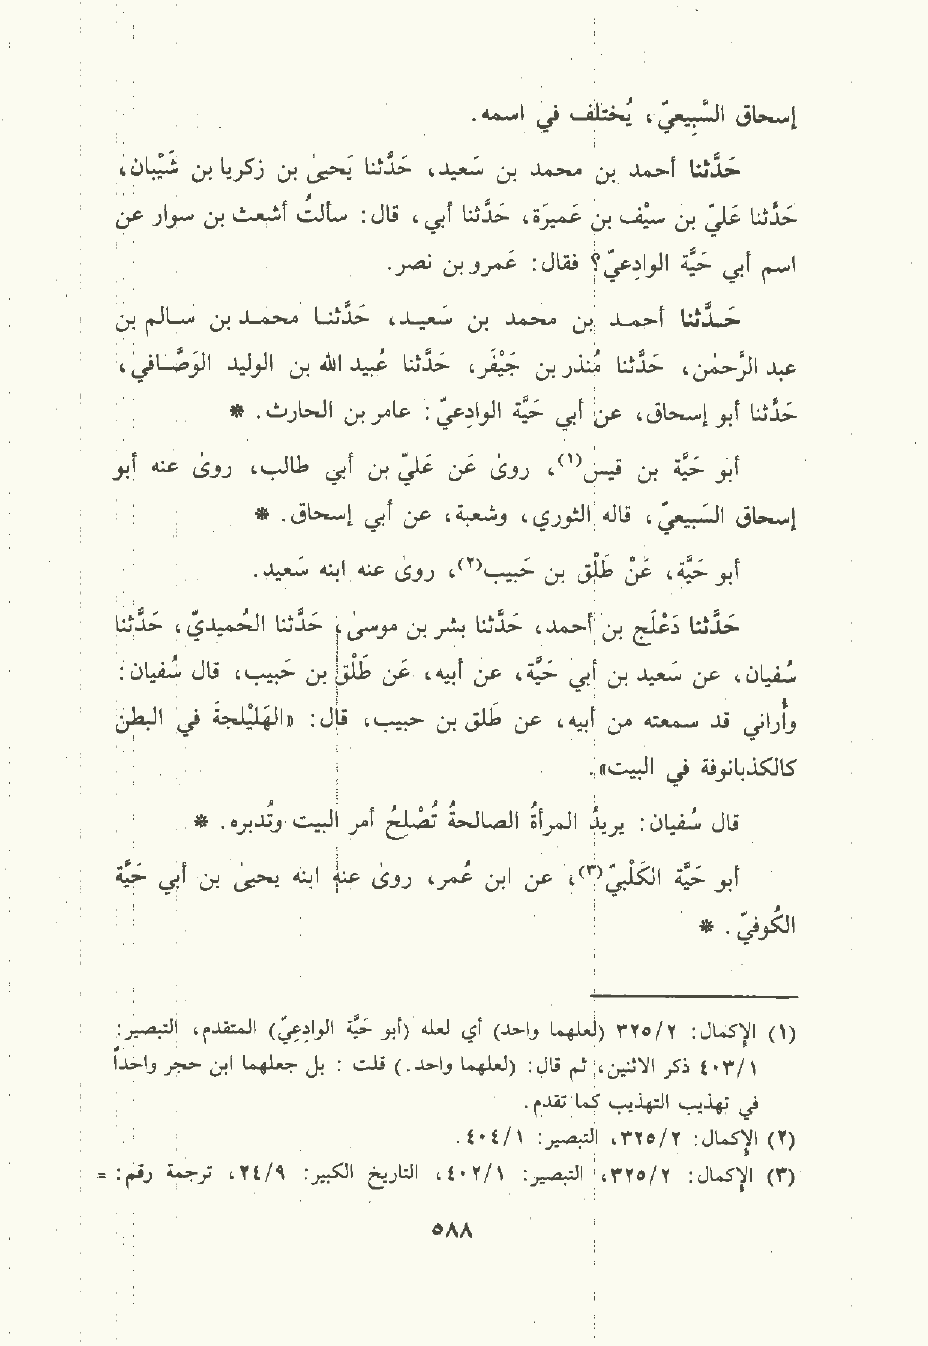 إسحاق السَّبِيعيّ، يُختلَف في اسمه.
حَدَّثنا أحمد بن محمد بن سَعيد، حَدَّثنا يَحيىٰ بن زكريا بن شَيْبان،
حَدَّثنا عَليّ بن سَيْف بن عَمِيرَة، حَدَّثنا أبي، قال: سألتُ أشعث بن سوار عن
اسم أبي حَيَّة الوادِعيّ؟ فقال: عَمرو بن نصر.
حَـدَّثنا أحمـد بن محمد بن سَـعيـد، حَدَّثنـا محمـد بن سـالم بن
عبد الرَّحمٰن، حَدَّثنا مُنذر بن جَيْفَر، حَدَّثنا عُبيد الله بن الوليد الوَصَّـافي،
حَدَّثنا أبو إسحاق، عن أبي حَيَّة الوادِعيّ: عامر بن الحارث. *
أبو حَيَّة بن قيس(١)، روىٰ عَن عَليّ بن أبي طالب، روىٰ عنه أبو
إسحاق السَّبيعيّ، قاله الثوري، وشعبة، عن أبي إسحاق. *
أبو حَيَّة، عَنْ طَلْق بن حَبيب(٢)، روىٰ عنه ابنه سَعيد.
حَدَّثنا دَعْلَج بن أحمد، حَدَّثنا بشر بن موسىٰ، حَدَّثنا الحُميديّ، حَدَّثنا
سُفيان، عن سَعيد بن أبي حَيَّة، عن أبيه، عَن طَلْق بن حَبيب، قال سُفيان:
وأُراني قد سمعته من أبيه، عن طَلق بن حبيب، قال: «الهَلِيْلجَة في البطن
كالكذبانوفة في البيت».
قال سُفيان: يريدُ المرأةُ الصالحةُ تُصْلِحُ أمر البيت وتُدبره. *
أبو حَيَّة الكَلْبيّ(٣)، عن ابن عُمر، روىٰ عنه ابنه يحيىٰ بن أبي حَيَّة
الكُوفيّ. *
(١) الإكمال: ٣٢٥/٢ (لعلهما واحد) أي لعله (أبو حَيَّة الوادِعِيّ) المتقدم، التبصير:
٤٠٣/١ ذكر الاثنين، ثم قال: (لعلهما واحد.) قلت : بل جعلهما ابن حجر واحداً
في تهذيب التهذيب كما تقدم.
(٢) الإكمال: ٣٢٥/٢، التبصير: ٤٠٤/١.
(٣) الإكمال: ٣٢٥/٢، التبصير: ٤٠٢/١، التاريخ الكبير: ٢٤/٩، ترجمة رقم: =
٥٨٨